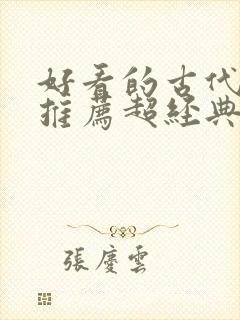 好看的古代
推薦超經典
張慶雲